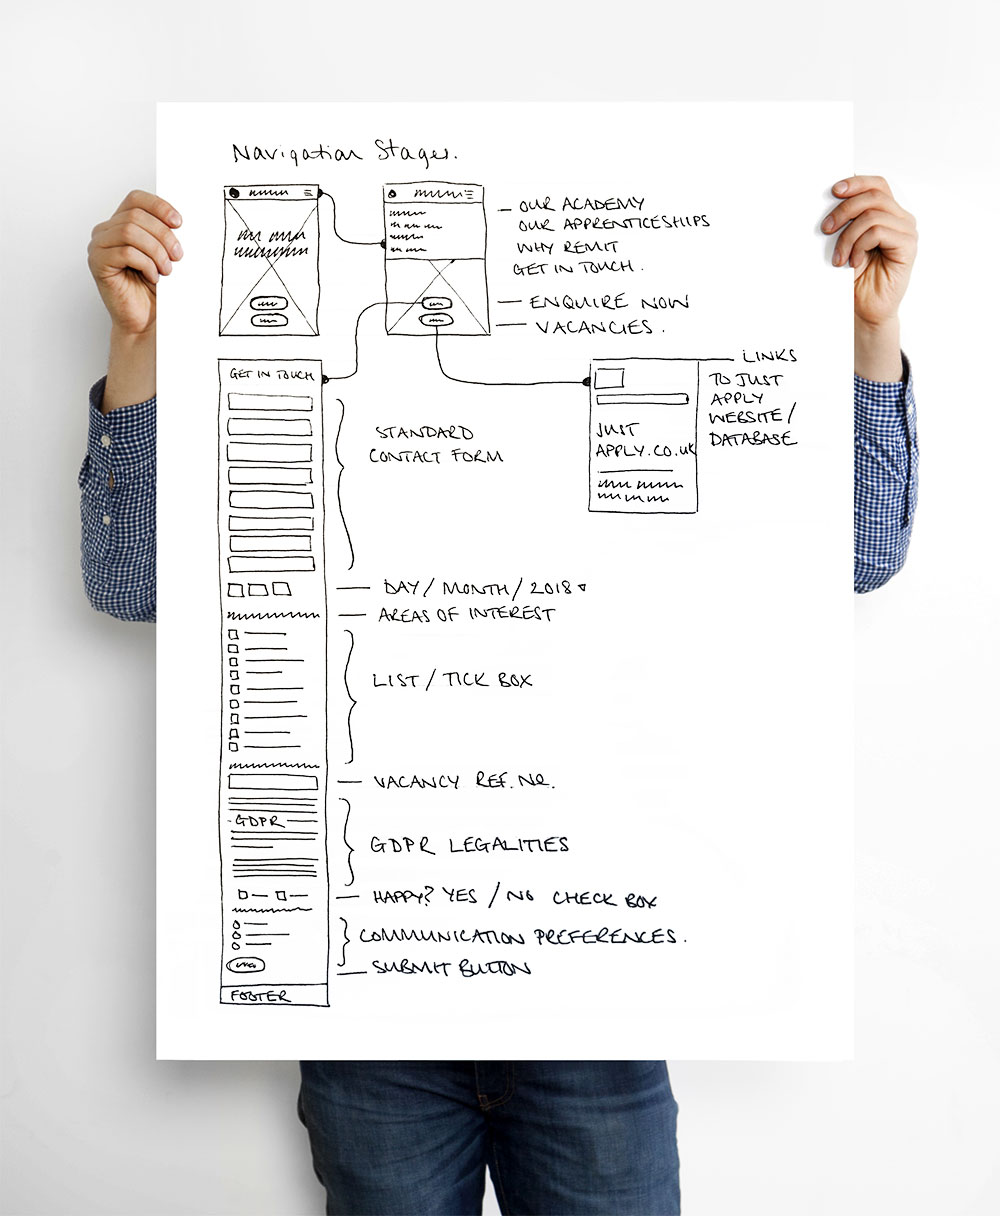 Navigation Stages.
OUR ACADEMY
OUR APPRENTICESHIPS
WHY REMIT
GET IN TOUCH.
ENQUIRE NOW
VACANCIES.
LINKS
TO JUST
APPLY
WEBSITE/
DATABASE
JUST
APPLY.CO.UK
GET IN TOUCH
STANDARD
CONTACT FORM
DAY / MONTH / 2018
AREAS OF INTEREST
LIST / TICK BOX
VACANCY REF. NO.
GDPR
GDPR LEGALITIES
HAPPY? YES / NO CHECK BOX
COMMUNICATION PREFERENCES.
SUBMIT BUTTON
FOOTER